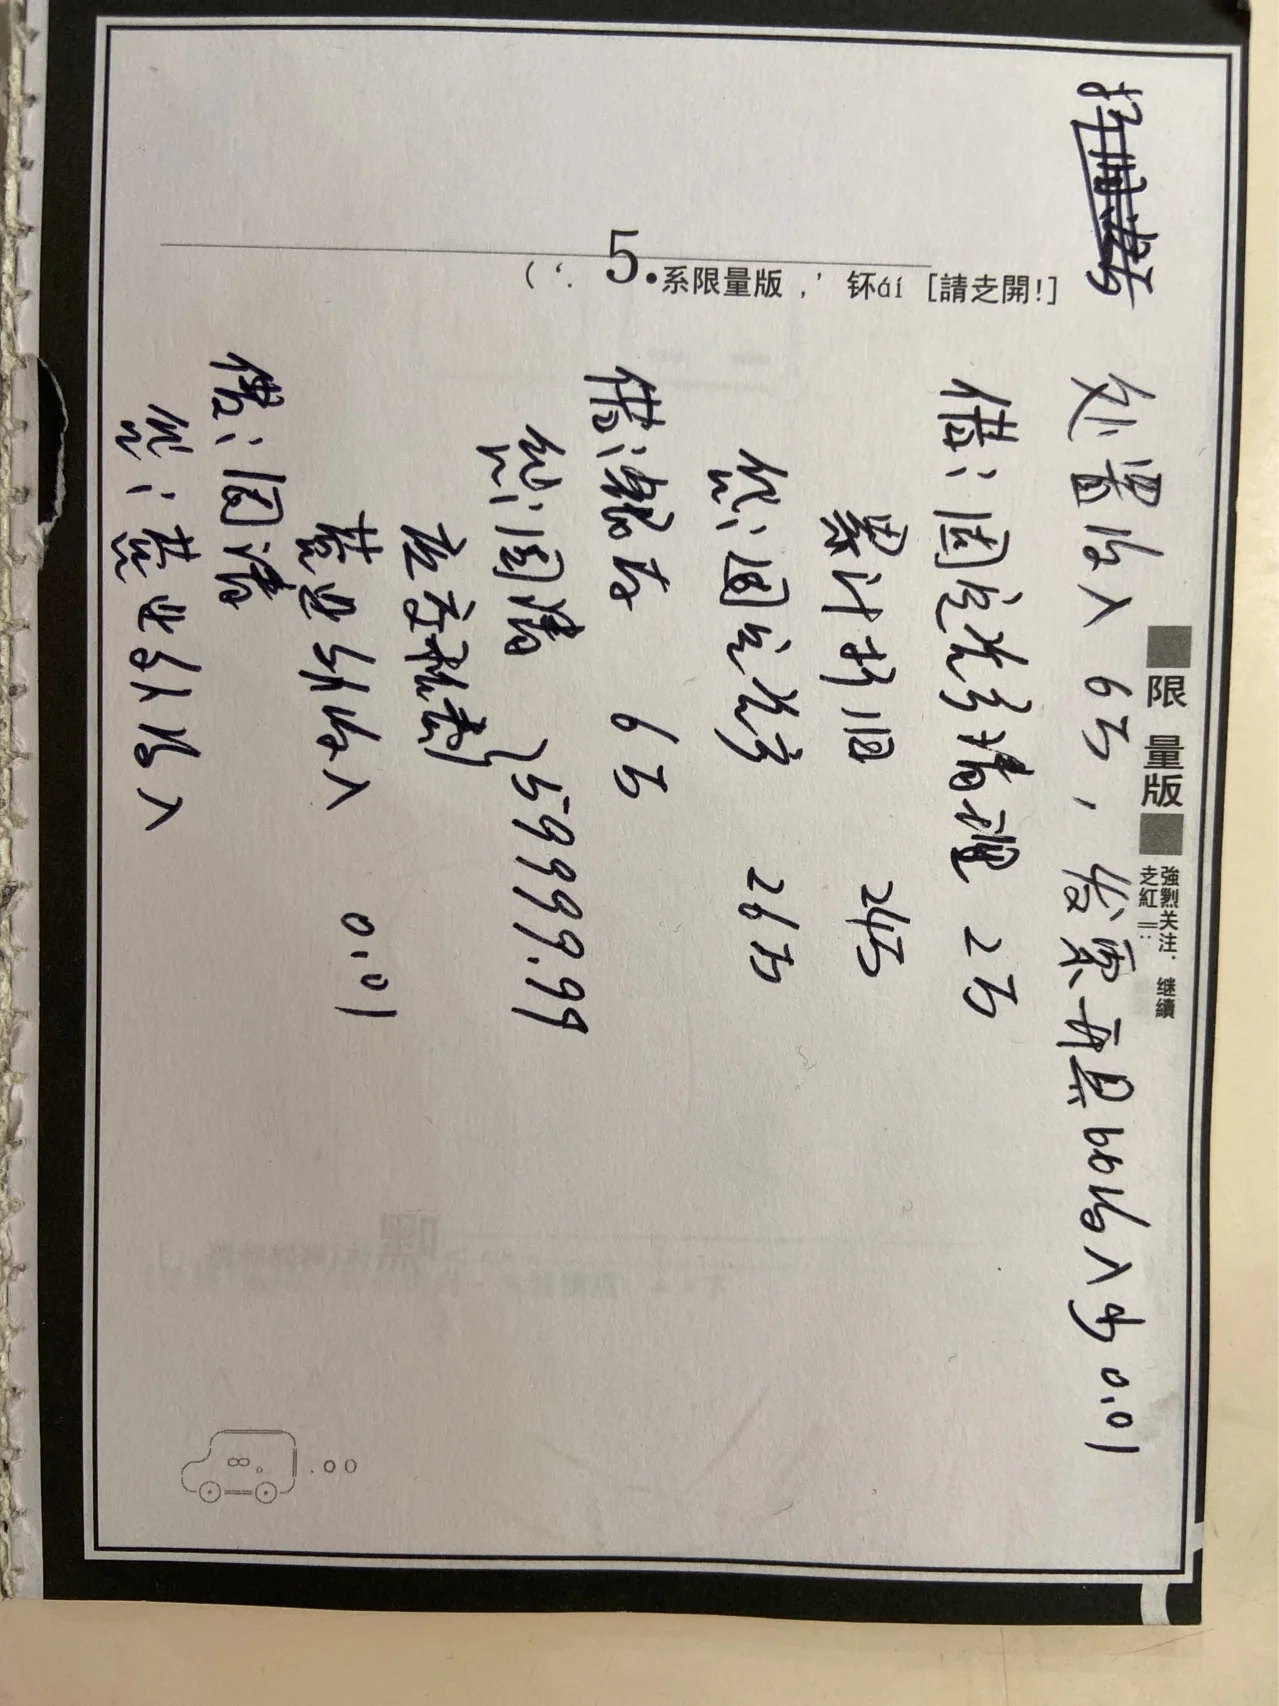 限量版
強烈关注．继續
走紅
5.系限量版，’钚áí [請走開!]
处置收入 6万，发票开具的收入为 0.01
借：固定资产清理 2万
累计折旧 24万
贷：固定资产 26万
借：银存 6万
贷：固清
应交税费 } 59999.99
营业外收入 0.01
借：固清
贷：营业外收入